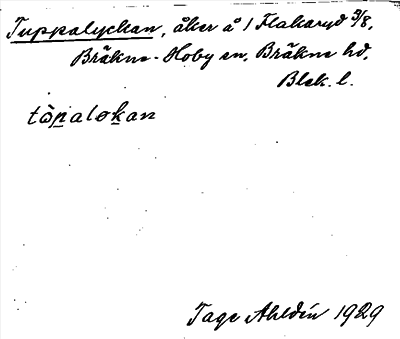 Tuppalyckan, åker å 1 Flakaryd 3/8,
Bräkne-Hoby sn, Bräkne hd,
Blek. l.
tòpalokan
Tage Ahldin 1929